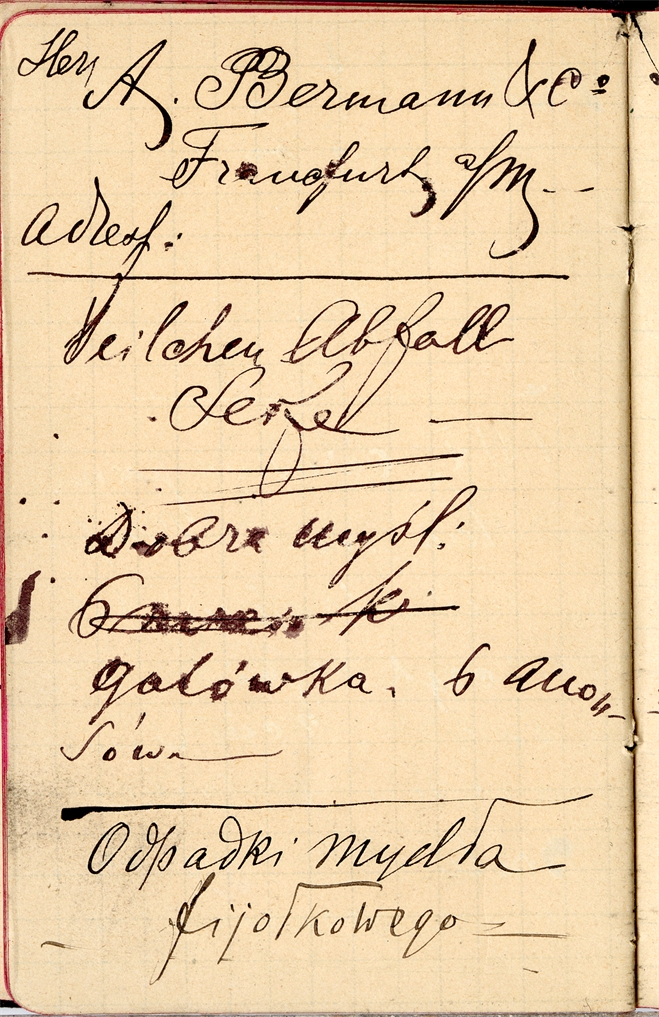 Herr A. Bermann & Co
Francfurt a/M. —
Adress:
Veilchen Abfall
Seife —
Dobra myśl:
gotówka. 6 anon-
sów. —
Odpadki mydła
fijołkowego —